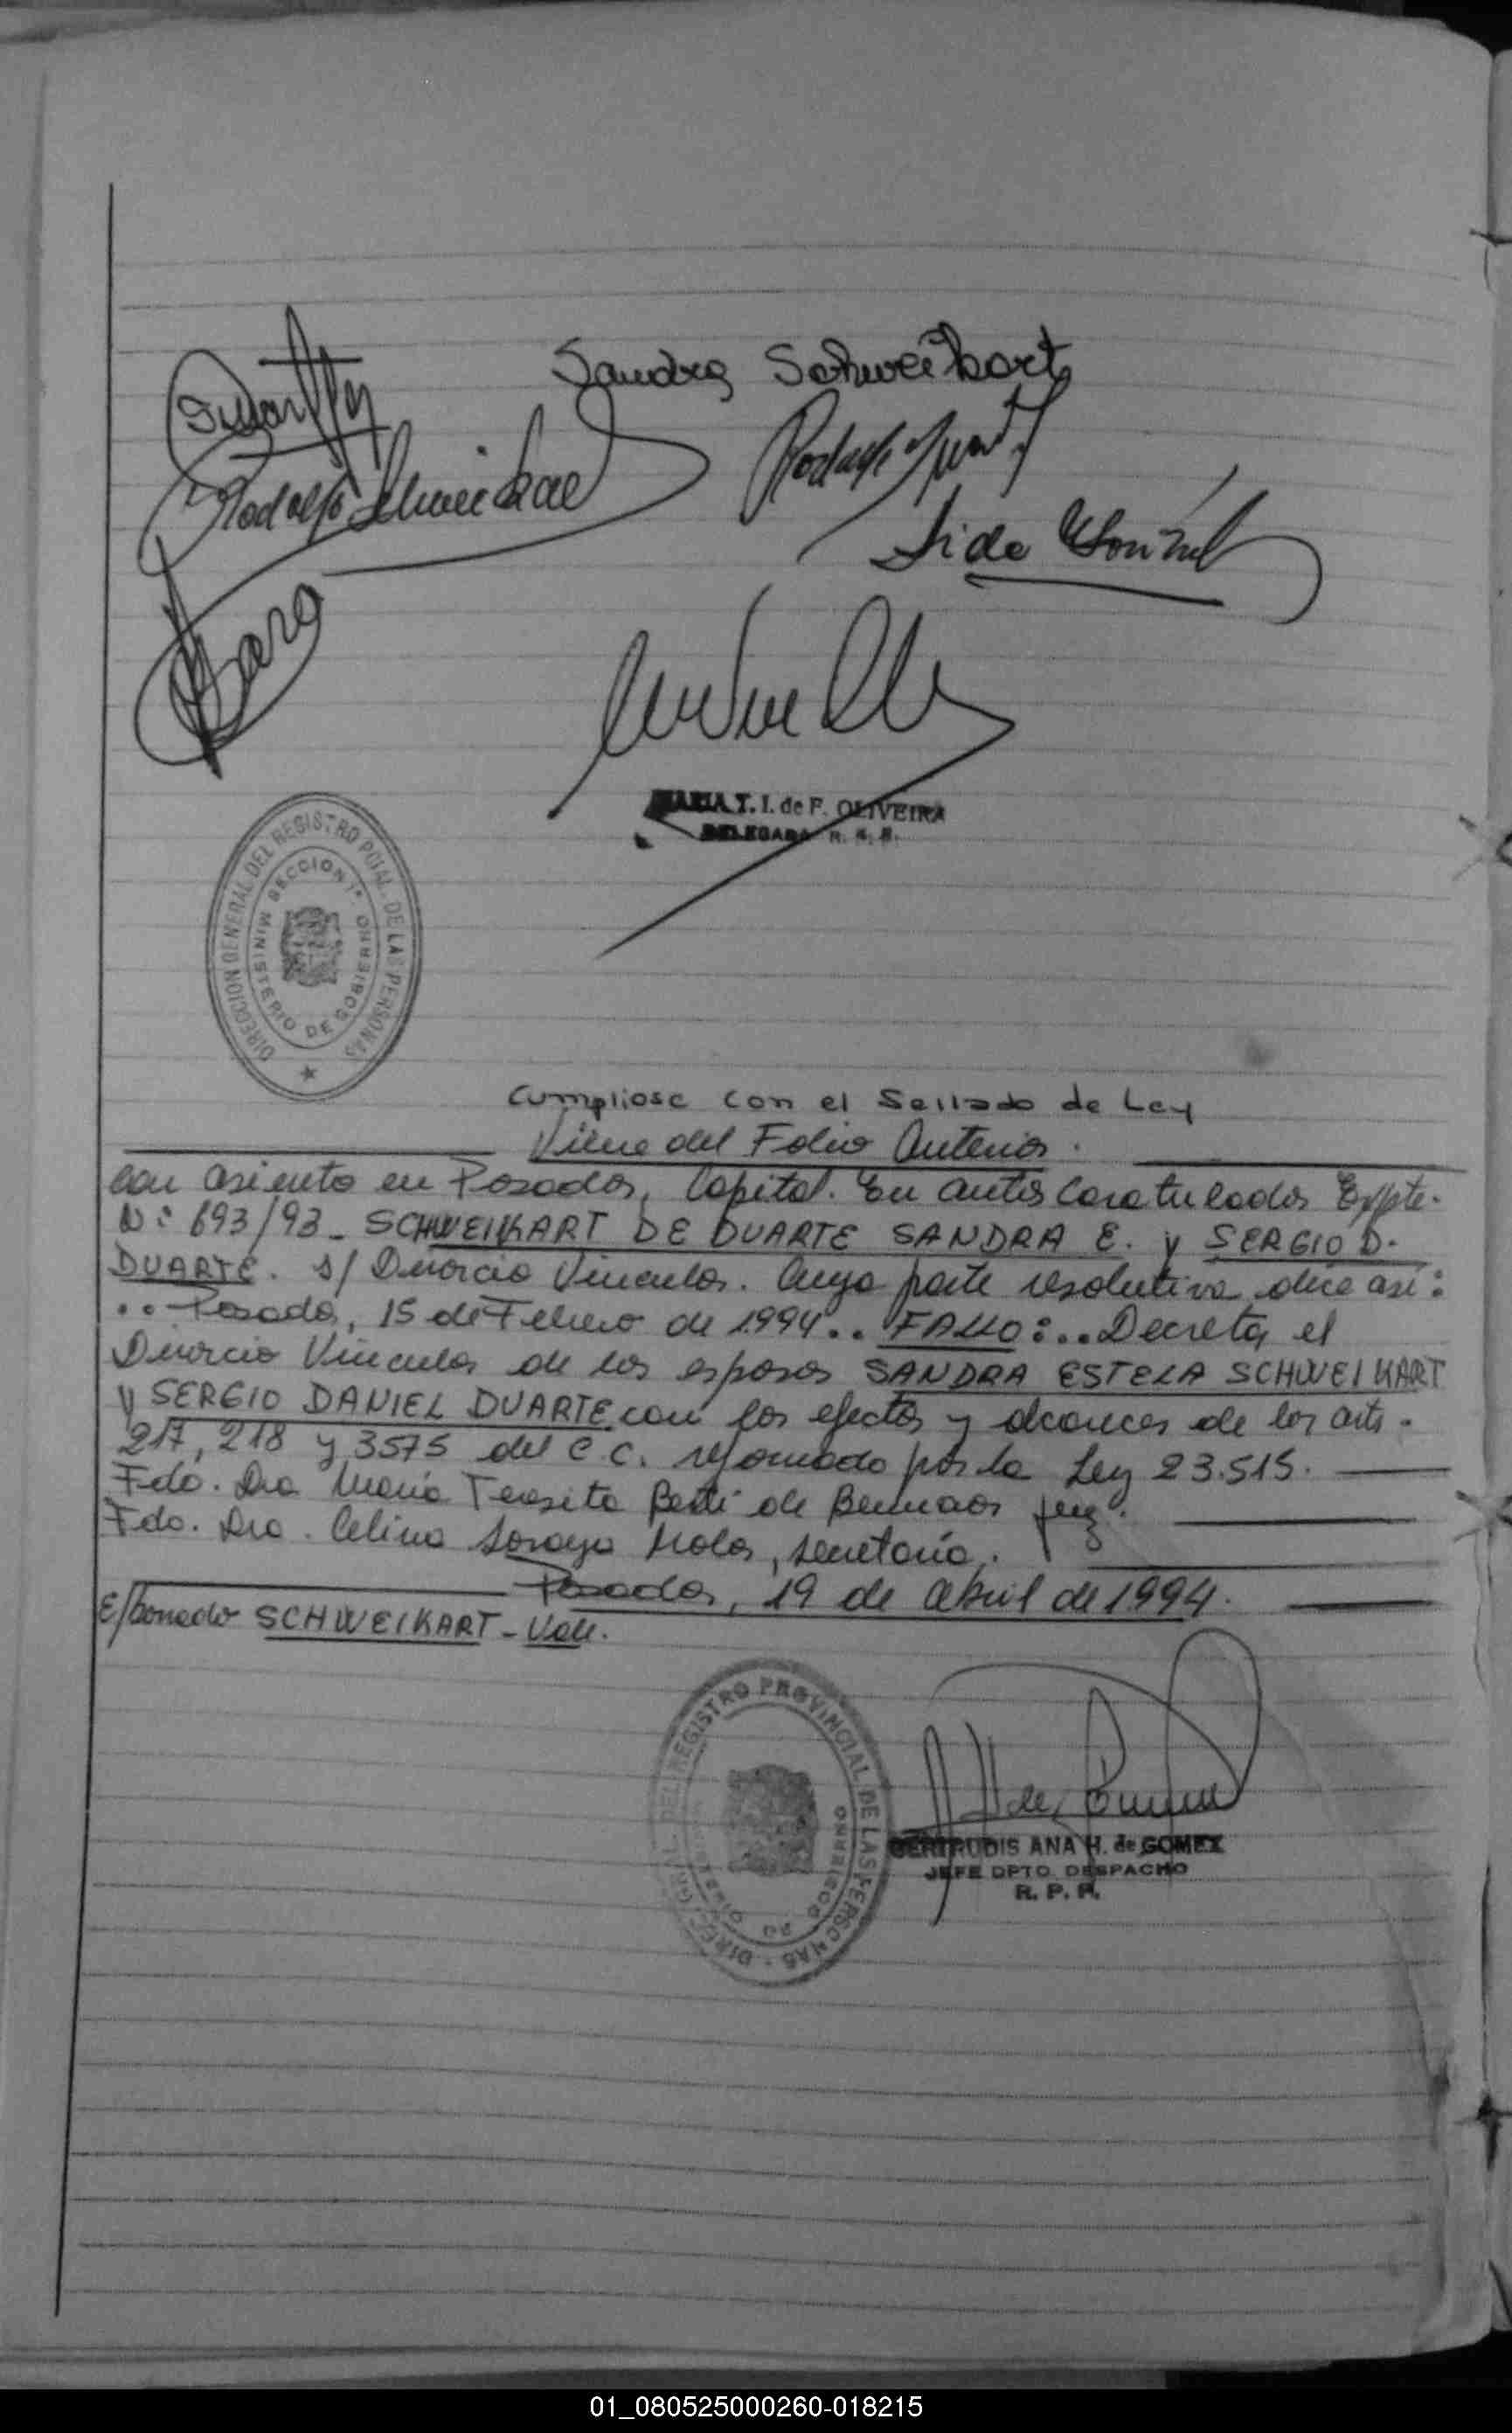 Sandra Schweikart
Rodolfo
MARIA T. I. de F. OLIVEIRA
DELEGADA R.
DIRECCION GENERAL DEL REGISTRO PCIAL. DE LAS PERSONAS
MINISTERIO DE GOBIERNO
SECCION 1ª
Cumpliose con el Sellado de Ley
Viene del Folio Anterior.
con asiento en Posadas, Capital. En autos Caratulados Expte.
Nº 693/93 - SCHWEIKART DE DUARTE SANDRA E. y SERGIO D.
DUARTE. s/ Divorcio Vincular. Cuya parte resolutiva dice así:
.. Posadas, 15 de Febrero de 1994.. FALLO:.. Decretar el
Divorcio Vincular de los esposos SANDRA ESTELA SCHWEIKART
y SERGIO DANIEL DUARTE con los efectos y alcances de los arts.
217, 218 y 3575 del C.C. reformado por la Ley 23.515.
Fdo. Dra María Teresita de Juez.
Fdo. Dra. Celina Soraya, secretaria.
Posadas, 19 de abril de 1994.
E/borrado SCHWEIKART - Vale.
DIREC. GRAL. DEL REGISTRO PROVINCIAL DE LAS PERSONAS
MINISTERIO DE GOBIERNO
GERTRUDIS ANA H. de GOMEZ
JEFE DPTO. DESPACHO
R. P. P.
01_080525000260-018215